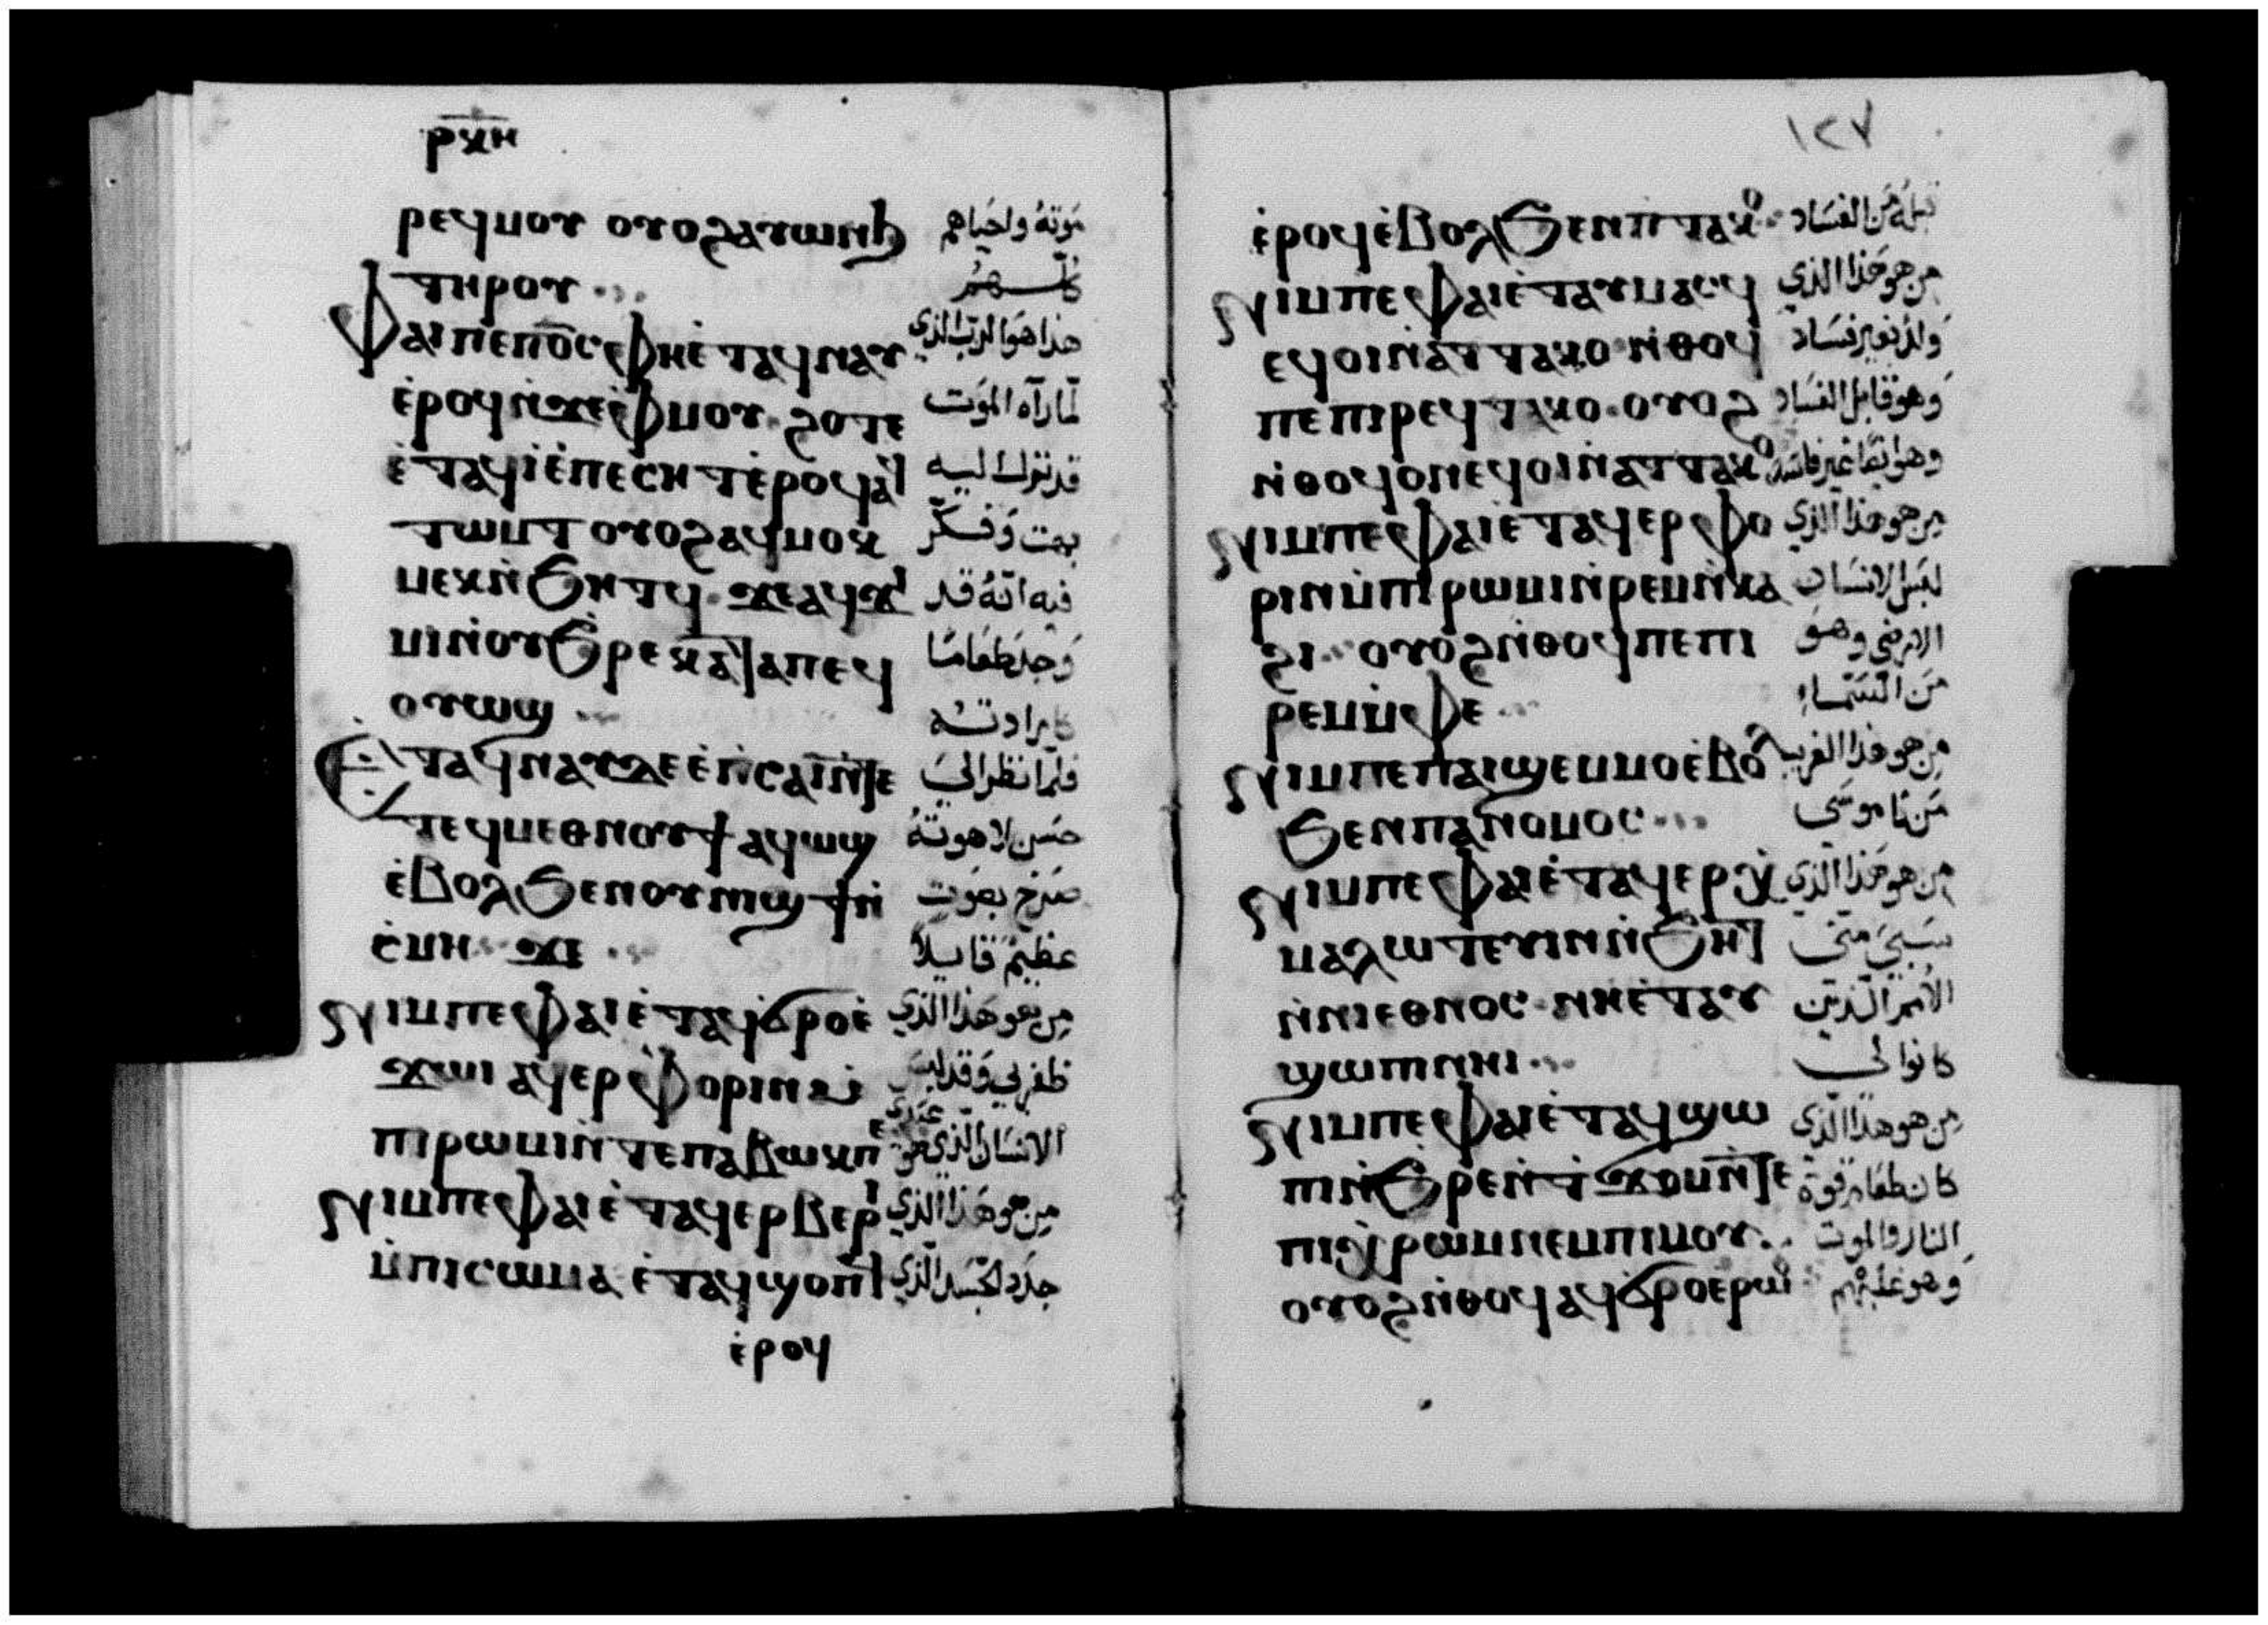 ⲣⲕⲏ
ⲣⲉϥⲙⲟⲩ ⲟⲩⲟϩⲁⲩⲱⲛϧ موته واحياهم
ⲧⲏⲣⲟⲩ كلهم
Ⲫⲁⲓⲡⲉⲡⲟ̅ⲥ̅ⲫⲏⲉ̀ⲧⲁϥⲛⲁⲩ هذا هو الرب الذي
ⲉ̀ⲣⲟϥⲛ̀ϫⲉⲫⲙⲟⲩ ϩⲟⲧⲉ لما رآه الموت
ⲉ̀ⲧⲁϥⲓ̀ⲉ̀ⲡⲉⲥⲏⲧⲉ̀ⲣⲟϥⲁϥ قد نزل اليه
ⲧⲱⲙⲧ ⲟⲩⲟϩⲁϥⲙⲟⲕ بهت وفكر
ⲙⲉⲕⲛ̀ϧⲏⲧϥ ϫⲉⲁϥϫ فيه انه قد
ⲙⲓⲛ̀ⲟⲩϧ̀ⲣⲉⲕⲁⲧⲁⲡⲉϥ وجد طعاما
ⲟⲩⲱϣ كارادته
Ⲉⲧⲁϥⲛⲁⲩⲇⲉⲉ̀ⲡ̀ⲥⲁⲓⲛ̀ⲧⲉ فلما نظر الى
ⲧⲉϥⲙⲉⲑⲛⲟⲩϯ ⲁϥⲱϣ حسن لاهوته
ⲉ̀ⲃⲟⲗϧⲉⲛⲟⲩⲛⲓϣϯⲛ̀ صرخ بصوت
ⲥ̀ⲙⲏ ϫⲉ عظيم قايلا
Ⲛⲓⲙⲡⲉⲫⲁⲓⲉ̀ⲧⲁϥϭ̀ⲣⲟⲉ̀ من هو هذا الذي
ϫⲱⲓ ⲁϥⲉⲣⲫⲟⲣⲓⲛ ظفر بي وقد لبس
ⲡⲓⲣⲱⲙⲓⲛ̀ⲧⲉⲡⲁⲃⲱⲕⲡⲉ الانسان الذي هو عبدي
Ⲛⲓⲙⲡⲉⲫⲁⲓⲉ̀ⲧⲁϥⲉⲣⲃⲉⲣⲓ من هو هذا الذي
ⲙ̀ⲡⲓⲥⲱⲙⲁ ⲉ̀ⲧⲁϥϣⲟⲡϥ جدد الجسد الذي
ⲉ̀ⲣⲟϥ
١٢٧
ⲉ̀ⲣⲟϥⲉ̀ⲃⲟⲗϧⲉⲛⲡⲧⲁⲕⲟ قبله من الفساد
Ⲛⲓⲙⲡⲉⲫⲁⲓⲉ̀ⲧⲁⲩⲙⲁⲥϥ من هو هذا الذي
ⲉϥⲟⲓⲛ̀ⲁⲧⲧⲁⲕⲟ ⲛ̀ⲑⲟϥ ولد بغير فساد
ⲡⲉⲡⲓⲣⲉϥⲧⲁⲕⲟ ⲟⲩⲟϩ وهو قابل الفساد
ⲛ̀ⲑⲟϥⲟⲛⲉϥⲟⲓⲛ̀ⲁⲧⲧⲁⲕⲟ وهو ايضا غير فاسد
Ⲛⲓⲙⲡⲉⲫⲁⲓⲉ̀ⲧⲁϥⲉⲣⲫⲟ من هو هذا الذي
ⲣⲓⲛⲙ̀ⲡⲓⲣⲱⲙⲓⲛ̀ⲣⲉⲙⲛ̀ⲕⲁ لبس الانسان
ϩⲓ ⲟⲩⲟϩⲛ̀ⲑⲟϥⲡⲉⲡⲓ الارضي وهو
ⲣⲉⲙⲙ̀ⲫⲉ من السماء
Ⲛⲓⲙⲡⲉⲡⲁⲓϣⲉⲙⲙⲟⲉ̀ⲃⲟⲗ من هو هذا الغريب
ϧⲉⲛⲡⲁⲛⲟⲙⲟⲥ من ناموسى
Ⲛⲓⲙⲡⲉⲫⲁⲓⲉ̀ⲧⲁϥⲉⲣⲉⲭ من هو هذا الذي
ⲙⲁⲗⲱⲧⲉⲩⲓⲛⲛ̀ϧⲏⲧ سبى مني
ⲛ̀ⲛⲓⲉⲑⲛⲟⲥ ⲛⲏⲉ̀ⲧⲁⲩ الأمم الذين
ϣⲱⲡⲓⲛⲏⲓ كانوا لي
Ⲛⲓⲙⲡⲉⲫⲁⲓⲉ̀ⲧⲁϥϣⲱ من هو هذا الذي
ⲡⲓⲛ̀ϧ̀ⲣⲉⲛ̀ϯϫⲟⲙⲛ̀ⲧⲉ كان طعام قوة
ⲡⲓⲭ̀ⲣⲱⲙⲛⲉⲙⲡⲓⲙⲟⲩ النار والموت
ⲟⲩⲟϩⲛ̀ⲑⲟϥⲁϥϭ̀ⲣⲟⲉⲣⲱⲟⲩ وهو غلبهم